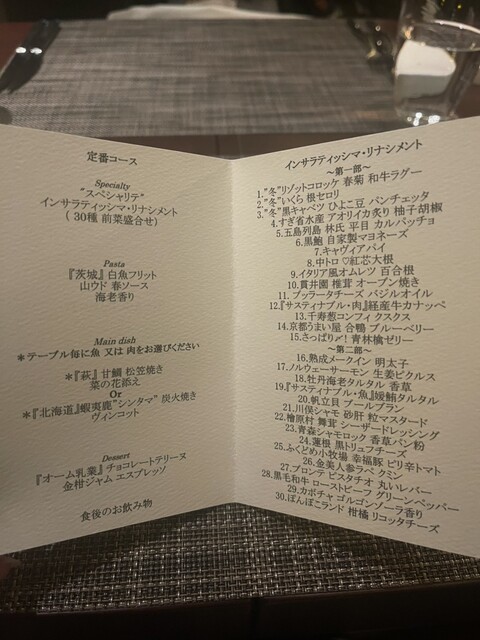 定番コース
Specialty
"スペシャリテ"
インサラティッシマ・リナシメント
( 30種 前菜盛合せ)
Pasta
『茨城』白魚フリット
山ウド 春ソース
海老香り
Main dish
*テーブル毎に魚 又は 肉をお選びください
*『萩』甘鯛 松笠焼き
菜の花添え
Or
*『北海道』蝦夷鹿"シンタマ" 炭火焼き
ヴィンコット
Dessert
『オーム乳業』チョコレートテリーヌ
金柑ジャム エスプレッソ
食後のお飲み物
インサラティッシマ・リナシメント
～第一部～
1."冬"リゾットコロッケ 春菊 和牛ラグー
2."冬"いくら 根セロリ
3."冬"黒キャベツ ひよこ豆 パンチェッタ
4.すさ省水産 アオリイカ炙り 柚子胡椒
5.五島列島 林氏 平目 カルパッチョ
6.黒鮑 自家製マヨネーズ
7.キャヴィアパイ
8.中トロ♡紅芯大根
9.イタリア風オムレツ 百合根
10.貫井園 椎茸 オーブン焼き
11. ブッラータチーズ バジルオイル
12.『サスティナブル・肉』経産牛カナッペ
13.千寿葱コンフィ クスクス
14.京都うまい屋 合鴨 ブルーベリー
15.さっぱり〆! 青林檎ゼリー
～第二部～
16.熟成メークイン 明太子
17.ノルウェーサーモン 生姜ピクルス
18.牡丹海老タルタル 香草
19.『サスティナブル・魚』媛鮪タルタル
20.帆立貝 ブールブラン
21.川俣シャモ 砂肝 粒マスタード
22.檜原村 舞茸 シーザードレッシング
23.青森シャモロック 香草パン粉
24.蓮根 黒トリュフチーズ
25.ふくどめ小牧場 幸福豚 ピリ辛トマト
26.金美人参ラペ クミン
27.ブロンテ ピスタチオ 丸いレバー
28.黒毛和牛 ローストビーフ グリーンペッパー
29.カボチャ ゴルゴンゾーラ香り
30.ぽんぽこランド 柑橘 リコッタチーズ